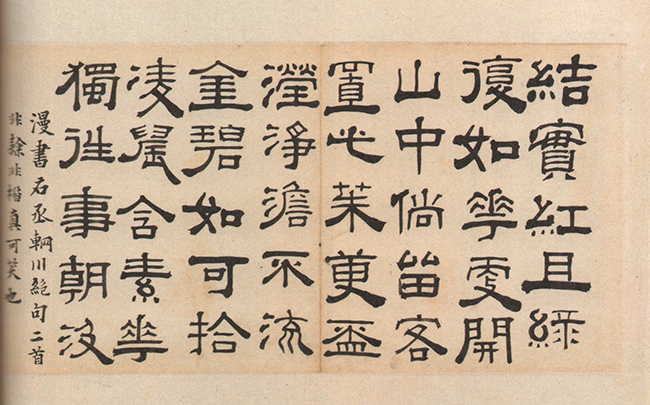 結實紅且綠
復如華更開
山中倘留客
置此茱萸盃
瀅淨澹不流
金碧如可拾
凌晨含素華
獨往事朝汲
漫書右丞輞川絕句二首
非隸非楷真可笑也